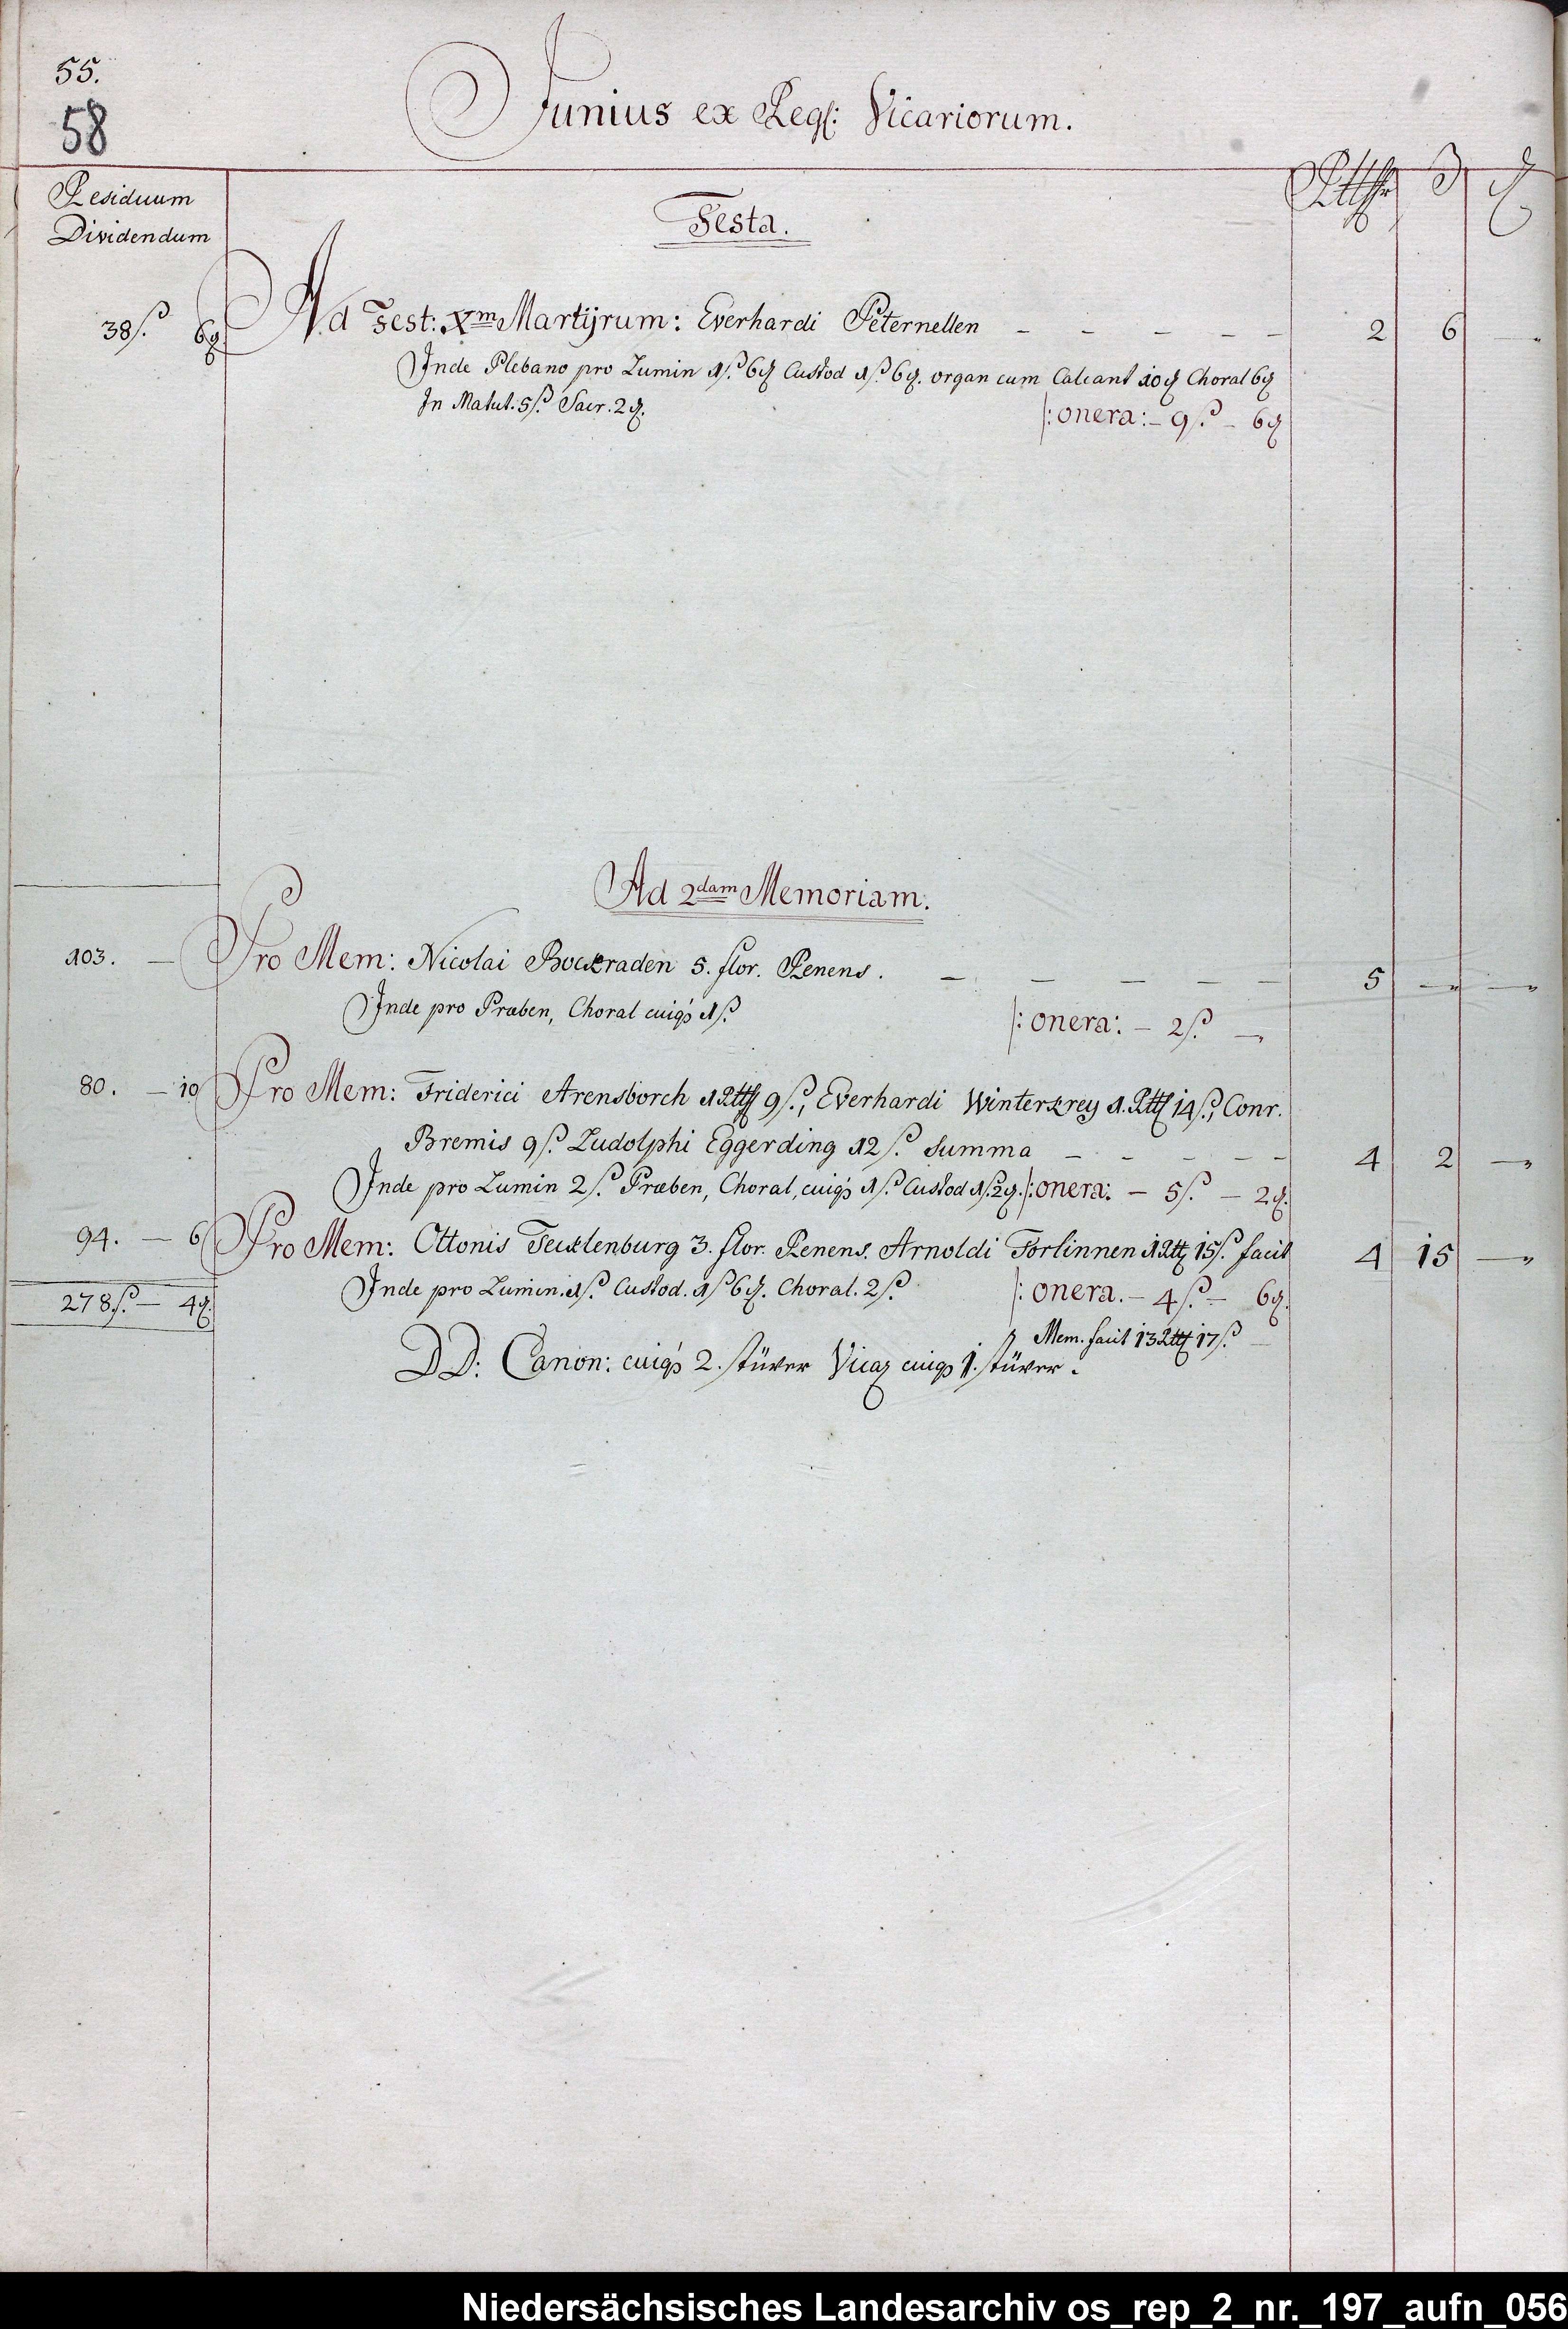 55.
58
Junius ex Regr: Vicariorum.
Residuum
Dividendum
Rtthlr ß ₰
Festa.
38 ß. 6₰ Ad Fest: Xm Martÿrum: Everhardi Peternellen - - - - - 2 6 -
Inde Plebano pro Lumin 1ß. 6₰ Custod 1ß. 6₰. organ cum Calcant 10₰ Choral 6₰
In Matut. 5ß. Sacr. 2₰. |: onera: - 9ß. - 6₰
Ad 2dam Memoriam.
103. - Pro Mem: Nicolai Bockraden 5. flor. Renens. - - - - - 5 - -
Inde pro Præben, Choral cuiqs 1ß. |: onera: - 2ß. -
80. - 10 Pro Mem: Friderici Arensborch 1 Rtt 9ß., Everhardi Winterkrey 1. Rtt 14ß., Conr.
Bremis 9ß. Ludolphi Eggerding 12ß. Summa - - - - - 4 2 -
Inde pro Lumin 2ß. Præben, Choral, cuiqs 1ß. Custod 1ß. 2₰. |: onera: - 5ß. - 2₰.
94. - 6 Pro Mem: Ottonis Tecklenburg 3. flor. Renens. Arnoldi Forlinnen 1 Rtt 15ß. facit 4 15 -
Inde pro Lumin. 1ß. Custod. 1ß 6₰. Choral. 2ß. |: onera. - 4ß. - 6₰.
278ß. - 4₰.
Mem. facit 13 Rtt 17ß. -
DD: Canon: cuiqs 2. stüver Vicar cuiqs 1. stüver.
Niedersächsisches Landesarchiv os_rep_2_nr._197_aufn_056